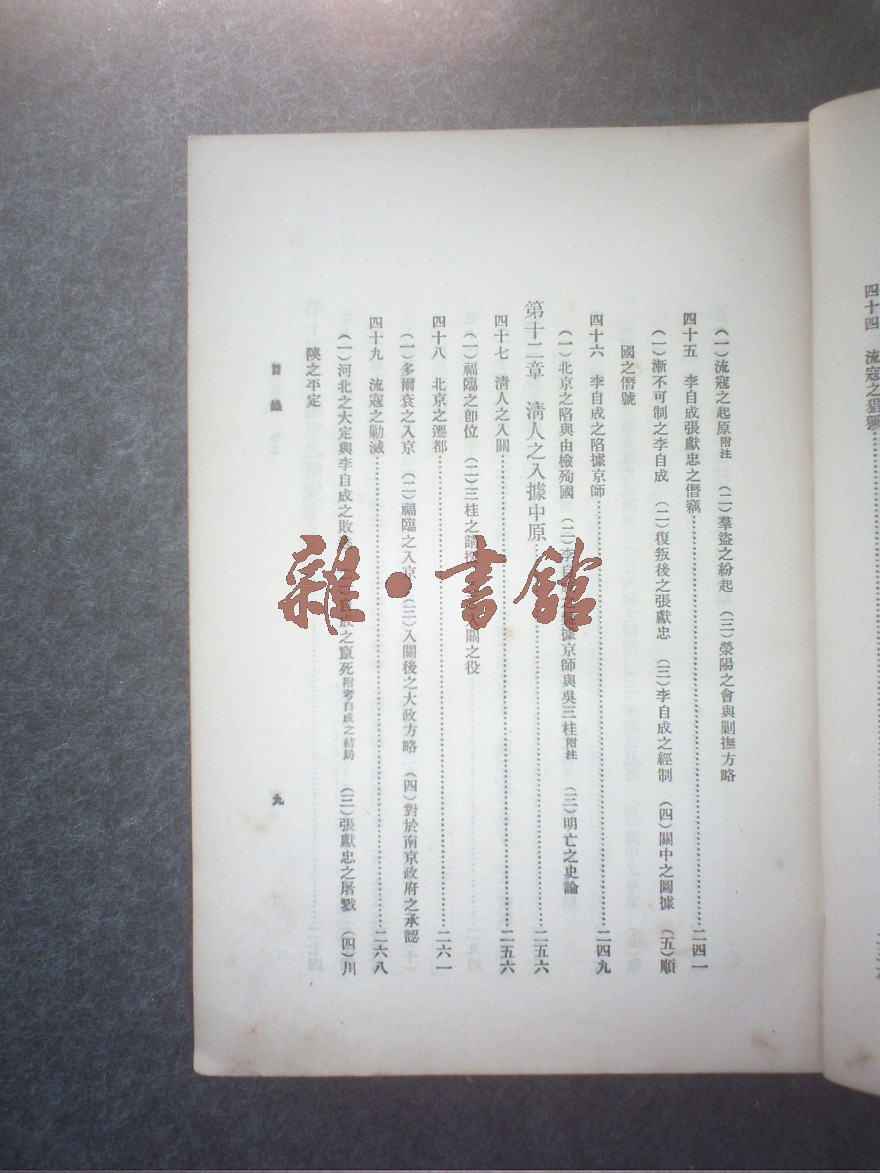 四十四　流寇之猖獗
（一）流寇之起原附注　（二）羣盜之紛起　（三）滎陽之會與剿撫方略
四十五　李自成張獻忠之僭竊……二四一
（一）漸不可制之李自成　（二）復叛後之張獻忠　（三）李自成之經制　（四）關中之圖據　（五）順
國之僭號
四十六　李自成之陷據京師……二四九
（一）北京之陷與由檢殉國　（二）李自　據京師與吳三桂附注　（三）明亡之史論
第十二章　淸人之入據中原……二五六
四十七　淸人之入關……二五六
（一）福臨之卽位　（二）三桂之請　入關之役
四十八　北京之遷都……二六一
（一）多爾袞之入京　（二）福臨之入京　（三）入關後之大政方略　（四）對於南京政府之承認
四十九　流寇之勦滅……二六八
（一）河北之大定與李自成之敗　之竄死附考自成之結局　（三）張獻忠之屠戮　（四）川
陝之平定
目錄
九
雜·書館